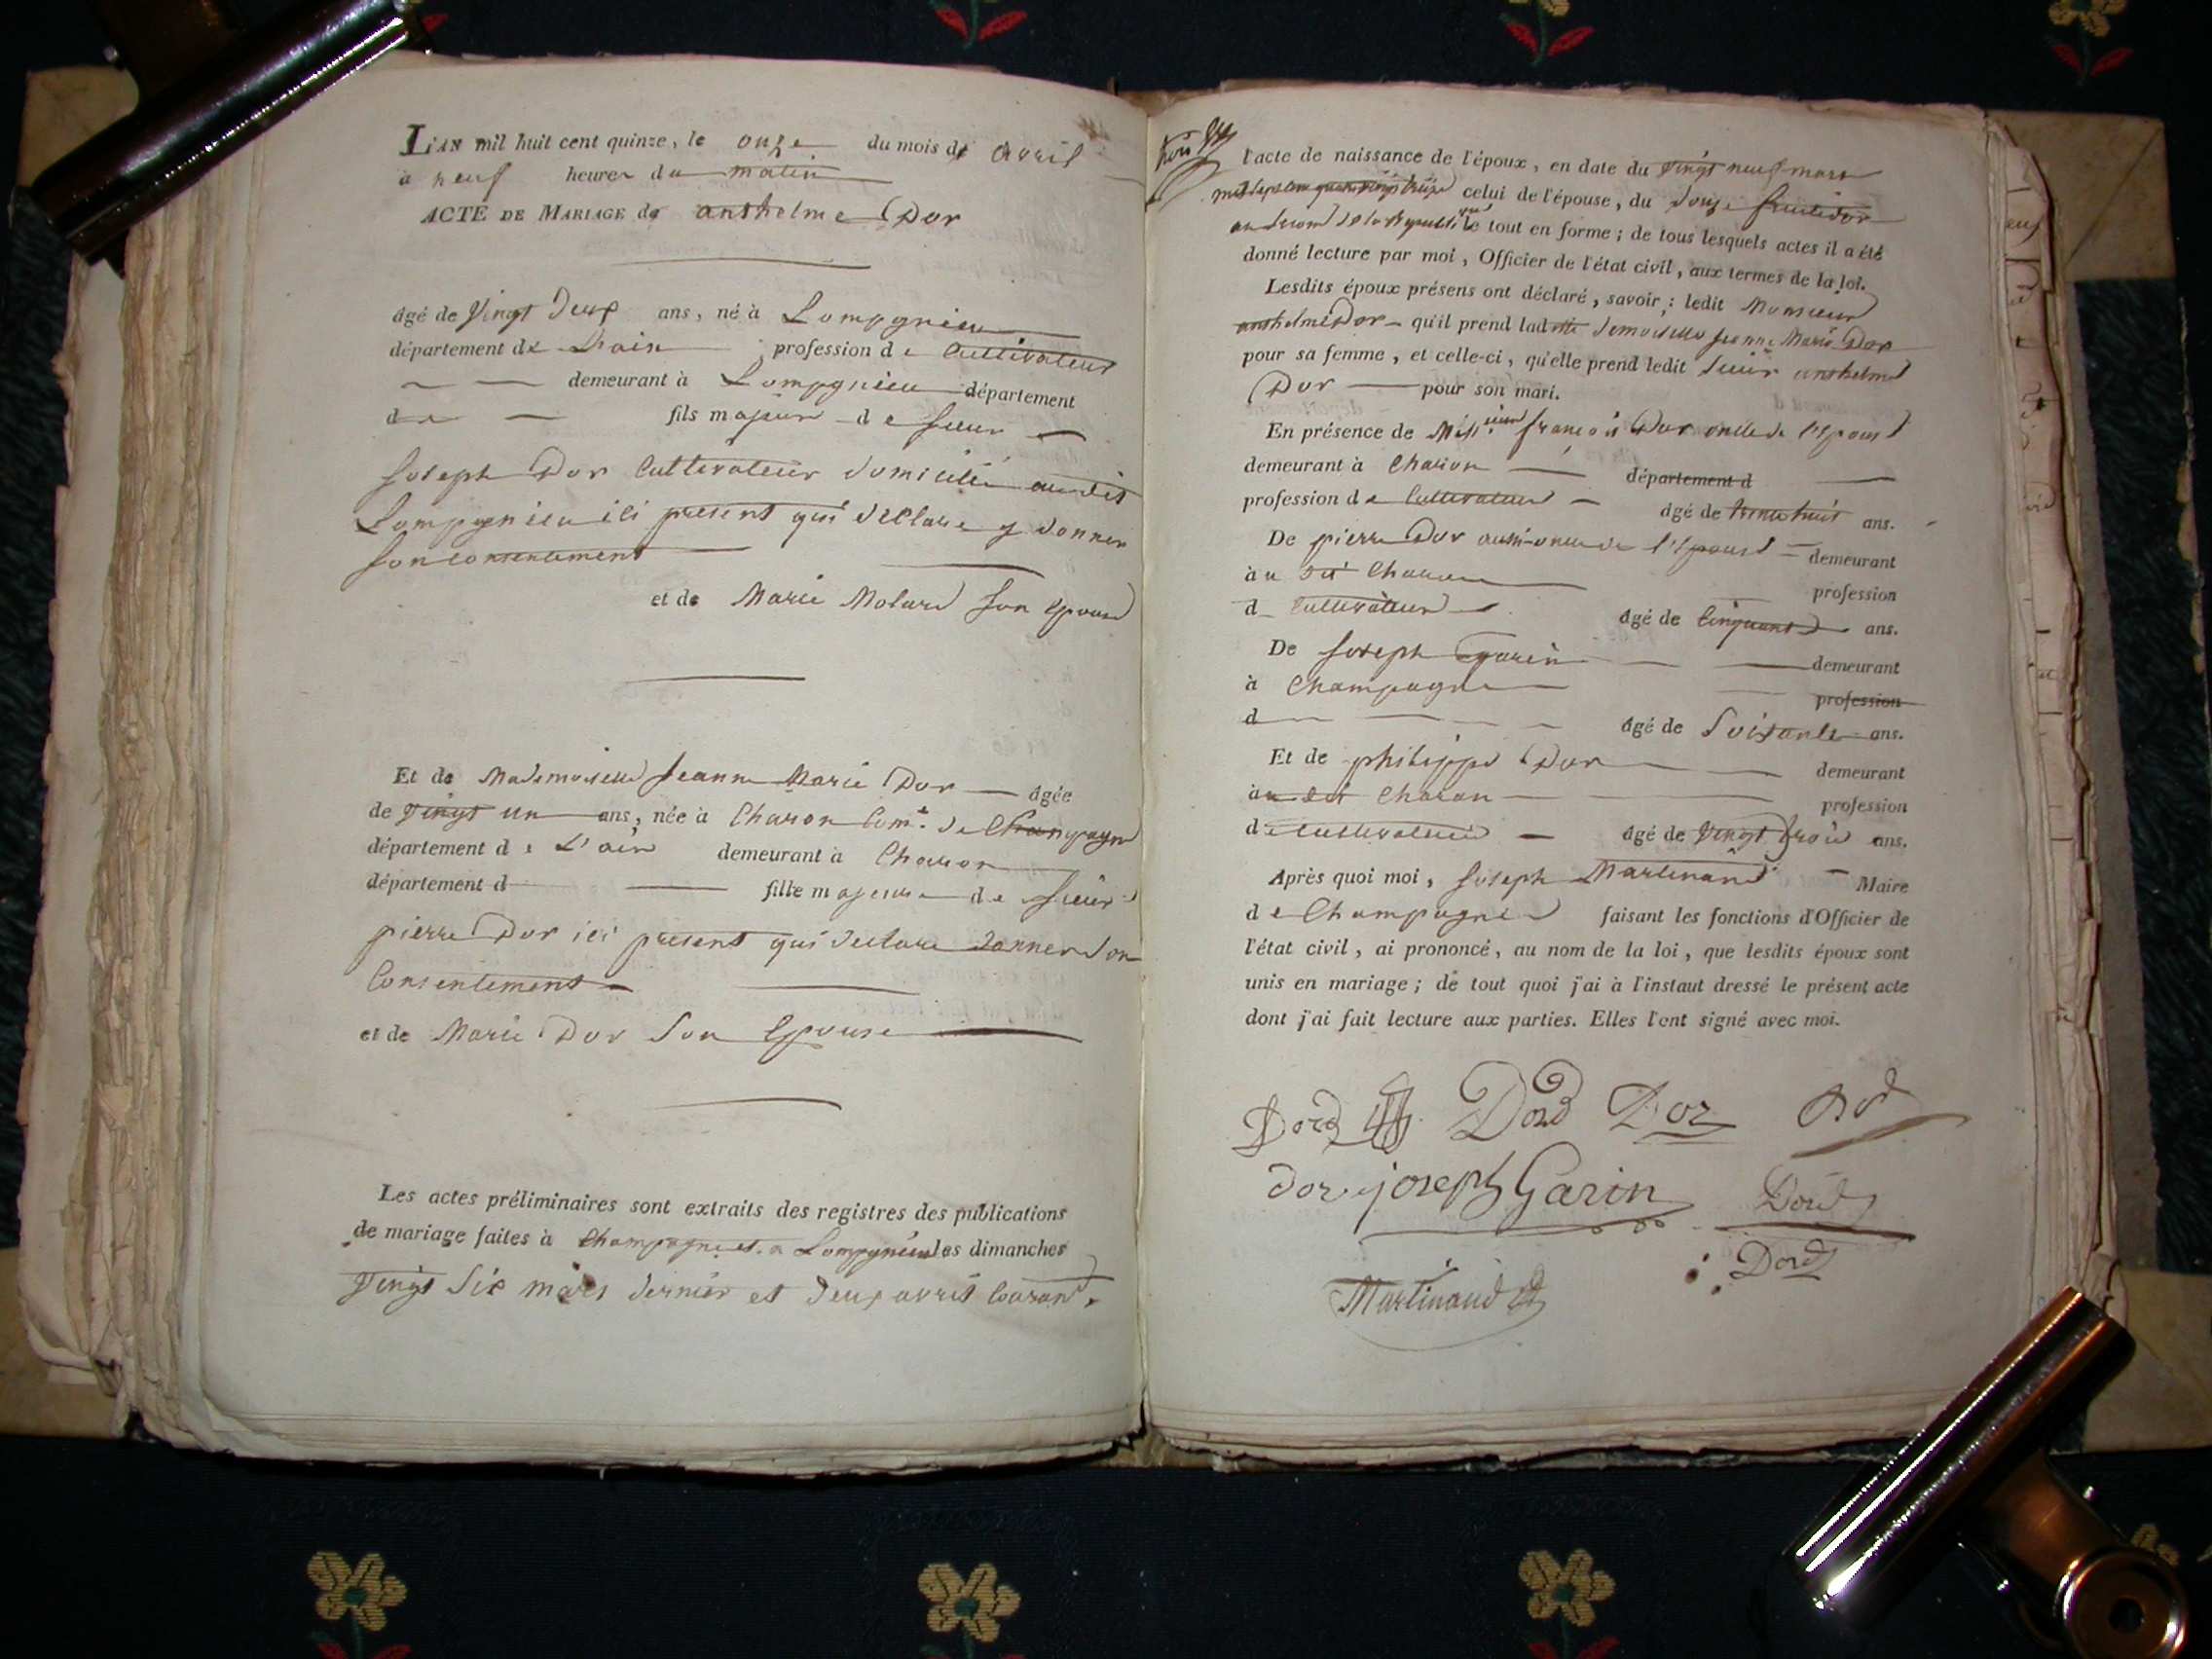 L'AN mil huit cent quinze, le onze du mois de avril
à neuf heures du matin
ACTE DE MARIAGE de anthelme Dor
âgé de vingt deux ans, né à Lompgnieu
département de L'ain profession de Cultivateur
demeurant à Lompgnieu département
de fils majeur de sieur
joseph Dor Cultivateur domicilié audit
Lompgnieu ici present qui declare y donner
son consentement
et de Marie Molard son epouse
Et de Mademoiselle jeanne Marie Dor âgée
de vingt un ans, née à Charon Com.e de Champagne
département de L'ain demeurant à Charon
département d fille majeure de sieur
pierre Dor ici present qui declare donner son
Consentement
et de Marie Dor son epouse
Les actes préliminaires sont extraits des registres des publications
de mariage faites à Champagne et a Lompgnieu les dimanches
vingt six mars dernier et deux avril Courant.
l'acte de naissance de l'époux, en date du vingt neuf mars
mil sept cent quatre vingt treize celui de l'épouse, du douze fructidor
an second de la Republique le tout en forme; de tous lesquels actes il a été
donné lecture par moi, Officier de l'état civil, aux termes de la loi.
Lesdits époux présens ont déclaré, savoir; ledit Monsieur
anthelme Dor qu'il prend lad demoiselle jeanne Marie Dor
pour sa femme, et celle-ci, qu'elle prend ledit sieur anthelme
Dor pour son mari.
En présence de françois Dor oncle de l'epouse
demeurant à Charon département d
profession de Cultivateur âgé de trente huit ans.
De pierre Dor aussi oncle de l'epouse demeurant
à u dit Charon profession
d Cultivateur âgé de Cinquante ans.
De joseph Garin demeurant
à Champagne profession
d âgé de Soixante ans.
Et de philippe Dor demeurant
àu dit Charon profession
de Cultivateur âgé de vingt trois ans.
Après quoi moi, joseph Martinand Maire
de Champagne faisant les fonctions d'Officier de
l'état civil, ai prononcé, au nom de la loi, que lesdits époux sont
unis en mariage; de tout quoi j'ai à l'instant dressé le présent acte
dont j'ai fait lecture aux parties. Elles l'ont signé avec moi.
Dord Dord Dor Dord
dor joseph Garin Dord
Dord
Martinaud